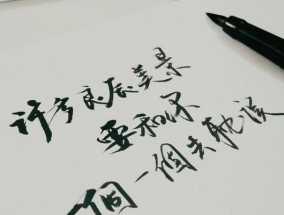 许多良辰美景
要和你
一個一個去耽误